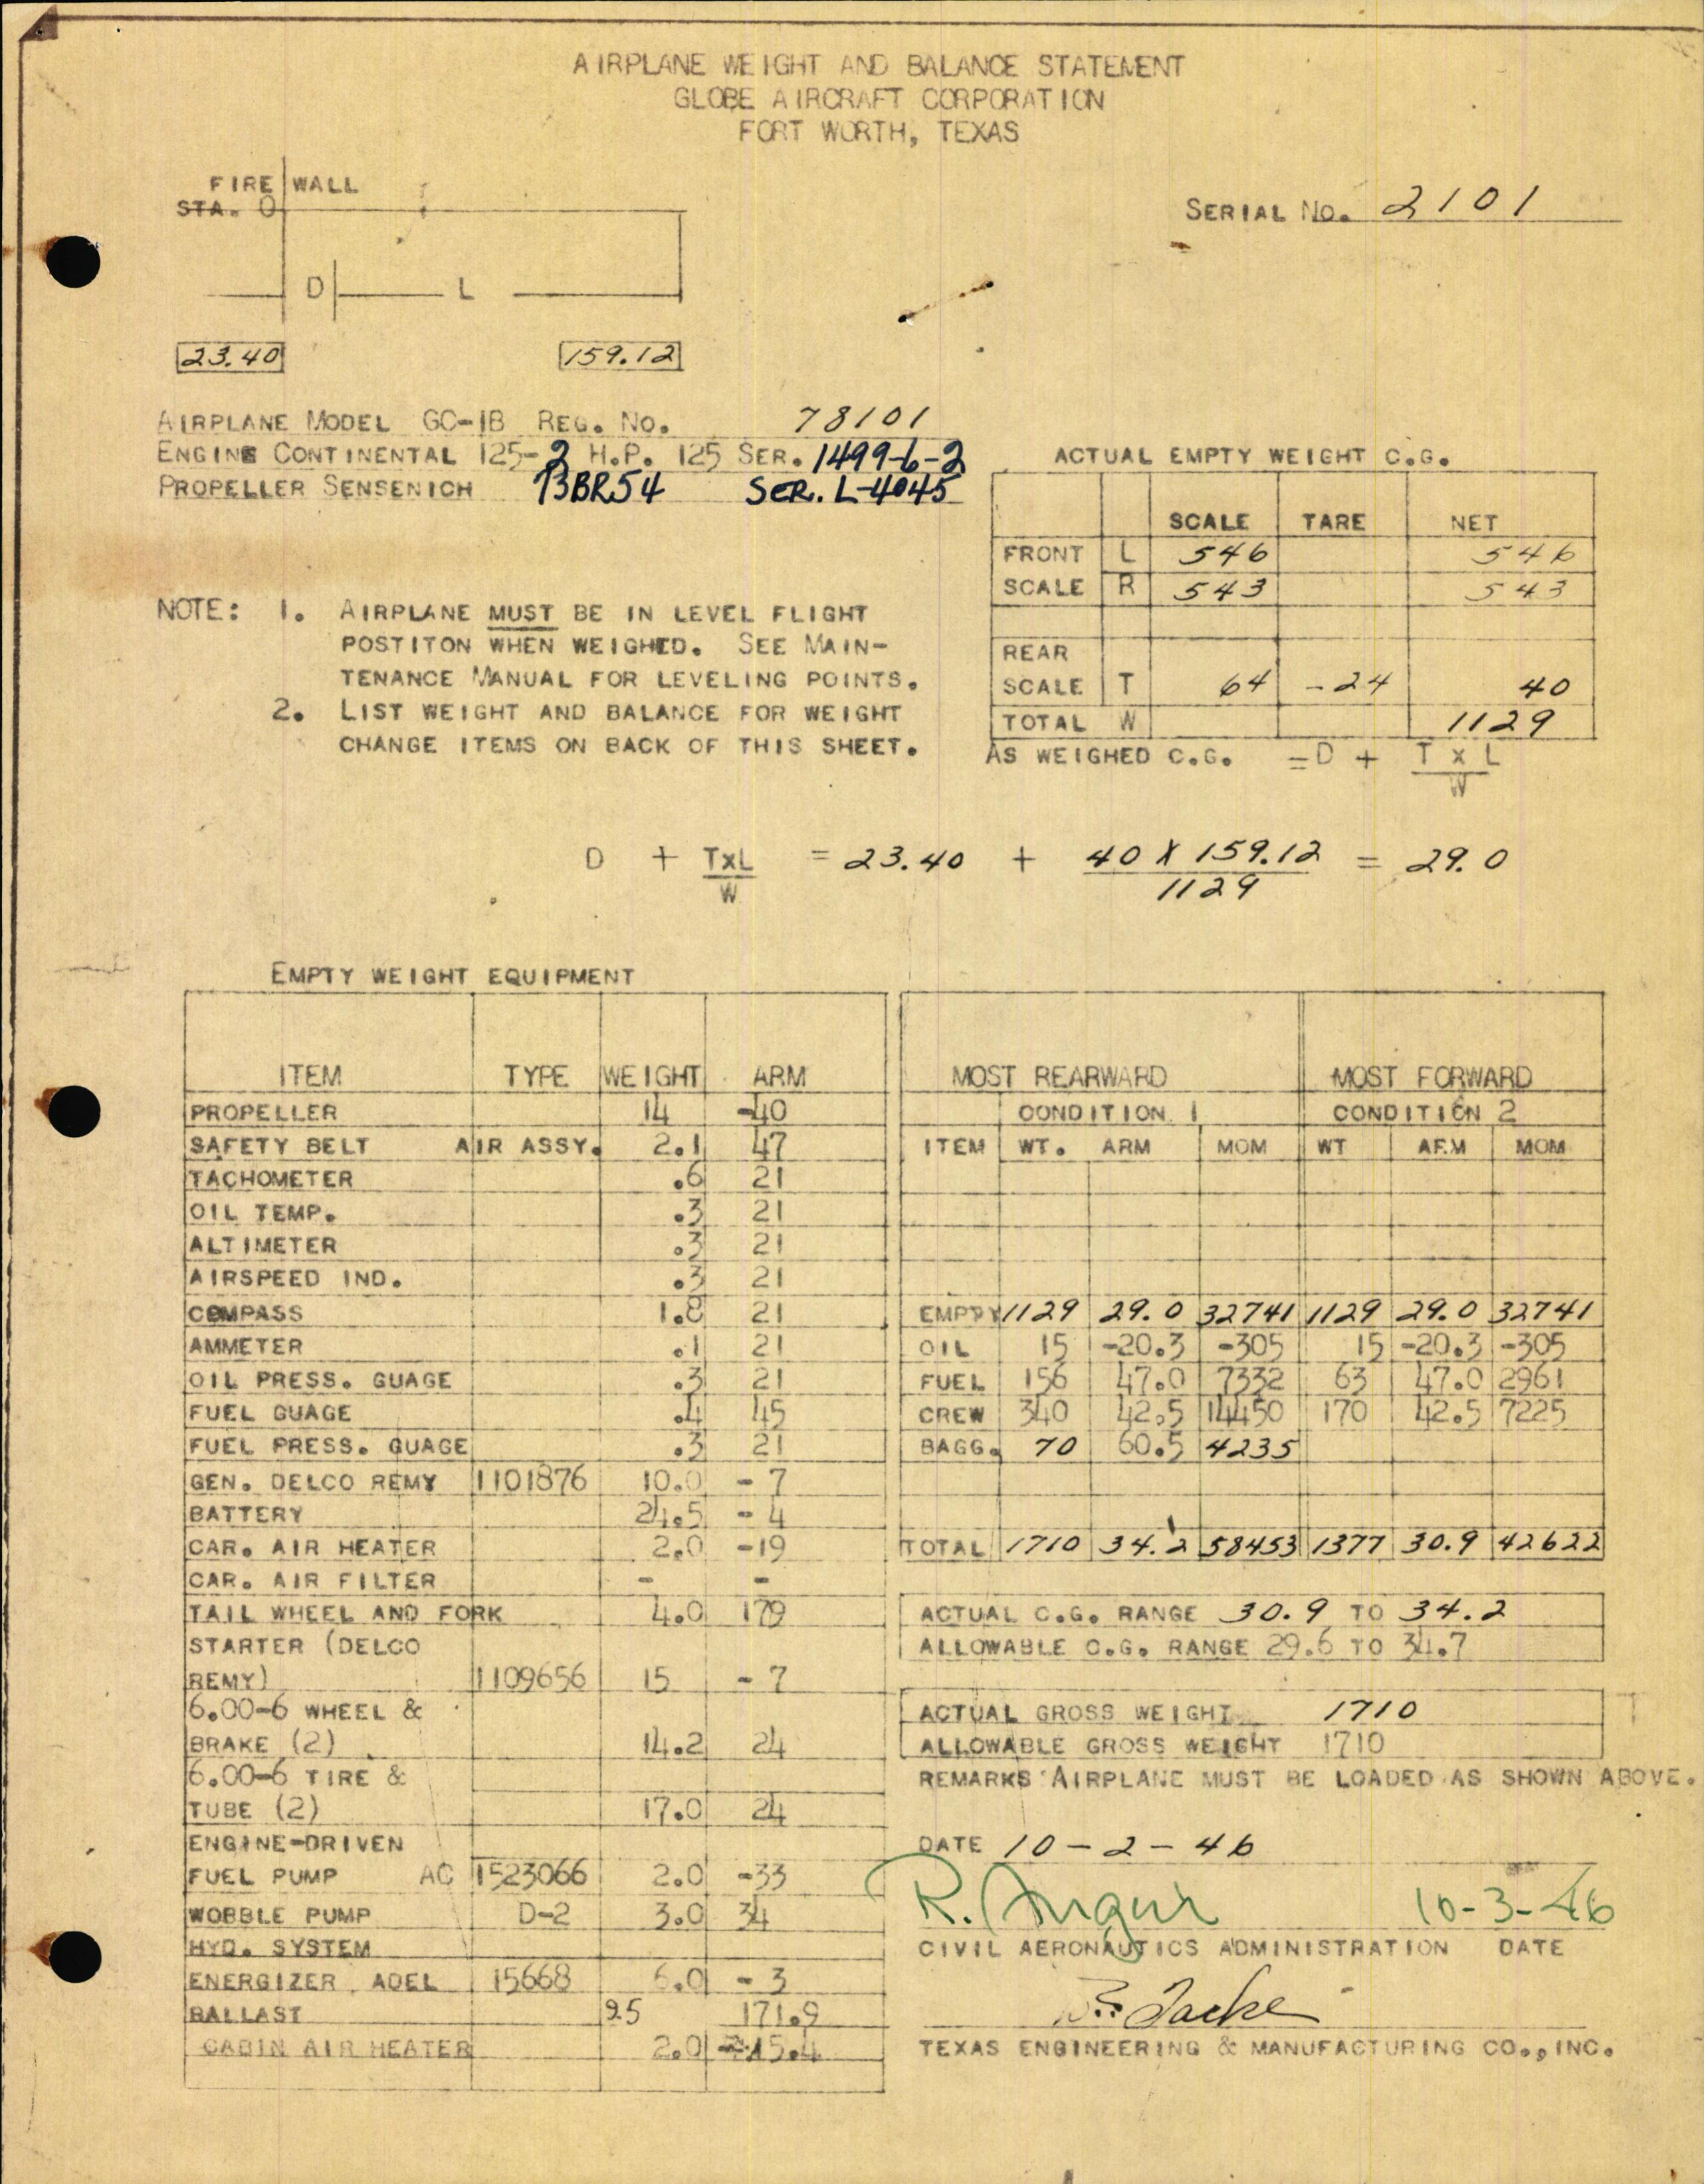 AIRPLANE WEIGHT AND BALANCE STATEMENT
GLOBE AIRCRAFT CORPORATION
FORT WORTH, TEXAS
FIRE WALL
STA. 0
SERIAL NO. 2101
D L
23.40 159.12
AIRPLANE MODEL GC-1B REG. NO. 78101
ENGINE CONTINENTAL 125-2 H.P. 125 SER. 1499-6-2
PROPELLER SENSENICH 73BR54 SER. L-4045
ACTUAL EMPTY WEIGHT C.G.
SCALE TARE NET
FRONT L 546 546
SCALE R 543 543
REAR
SCALE T 64 -24 40
TOTAL W 1129
AS WEIGHED C.G. =D + T X L
W
NOTE: 1. AIRPLANE MUST BE IN LEVEL FLIGHT
POSTITON WHEN WEIGHED. SEE MAIN-
TENANCE MANUAL FOR LEVELING POINTS.
2. LIST WEIGHT AND BALANCE FOR WEIGHT
CHANGE ITEMS ON BACK OF THIS SHEET.
D + TXL = 23.40 + 40 X 159.12 = 29.0
W 1129
EMPTY WEIGHT EQUIPMENT
ITEM TYPE WEIGHT ARM
PROPELLER 14 -40
SAFETY BELT AIR ASSY. 2.1 47
TACHOMETER .6 21
OIL TEMP. .3 21
ALTIMETER .3 21
AIRSPEED IND. .3 21
COMPASS 1.8 21
AMMETER .1 21
OIL PRESS. GUAGE .3 21
FUEL GUAGE .4 45
FUEL PRESS. GUAGE .3 21
GEN. DELCO REMY 1101876 10.0 - 7
BATTERY 24.5 - 4
CAR. AIR HEATER 2.0 -19
CAR. AIR FILTER - -
TAIL WHEEL AND FORK 4.0 179
STARTER (DELCO
REMY) 1109656 15 - 7
6.00-6 WHEEL &
BRAKE (2) 14.2 24
6.00-6 TIRE &
TUBE (2) 17.0 24
ENGINE-DRIVEN
FUEL PUMP AC 1523066 2.0 -33
WOBBLE PUMP D-2 3.0 34
HYD. SYSTEM
ENERGIZER ADEL 15668 6.0 - 3
BALLAST 25 171.9
CABIN AIR HEATER 2.0 15.4
MOST REARWARD MOST FORWARD
CONDITION 1 CONDITION 2
ITEM WT. ARM MOM WT ARM MOM
EMPTY 1129 29.0 32741 1129 29.0 32741
OIL 15 -20.3 -305 15 -20.3 -305
FUEL 156 47.0 7332 63 47.0 2961
CREW 340 42.5 14450 170 42.5 7225
BAGG. 70 60.5 4235
TOTAL 1710 34.2 58453 1377 30.9 42622
ACTUAL C.G. RANGE 30.9 TO 34.2
ALLOWABLE C.G. RANGE 29.6 TO 34.7
ACTUAL GROSS WEIGHT 1710
ALLOWABLE GROSS WEIGHT 1710
REMARKS AIRPLANE MUST BE LOADED AS SHOWN ABOVE.
DATE 10-2-46
R. 10-3-46
CIVIL AERONAUTICS ADMINISTRATION DATE
TEXAS ENGINEERING & MANUFACTURING CO., INC.